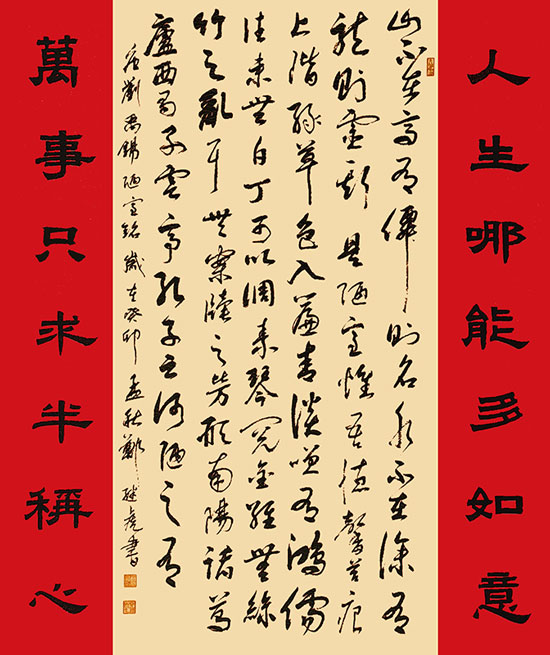 人生哪能多如意
山不在高有僊則名水不在深有
龍則靈斯是陋室惟吾德馨苔痕
上階綠草色入簾青談咲有鴻儒
往來無白丁可以調素琴閱金經無絲
竹之亂耳無案牘之勞形南陽諸葛
廬西蜀子雲亭孔子云何陋之有
唐劉禹錫陋室銘歲在癸卯孟秋鄭継虎書
萬事只求半稱心